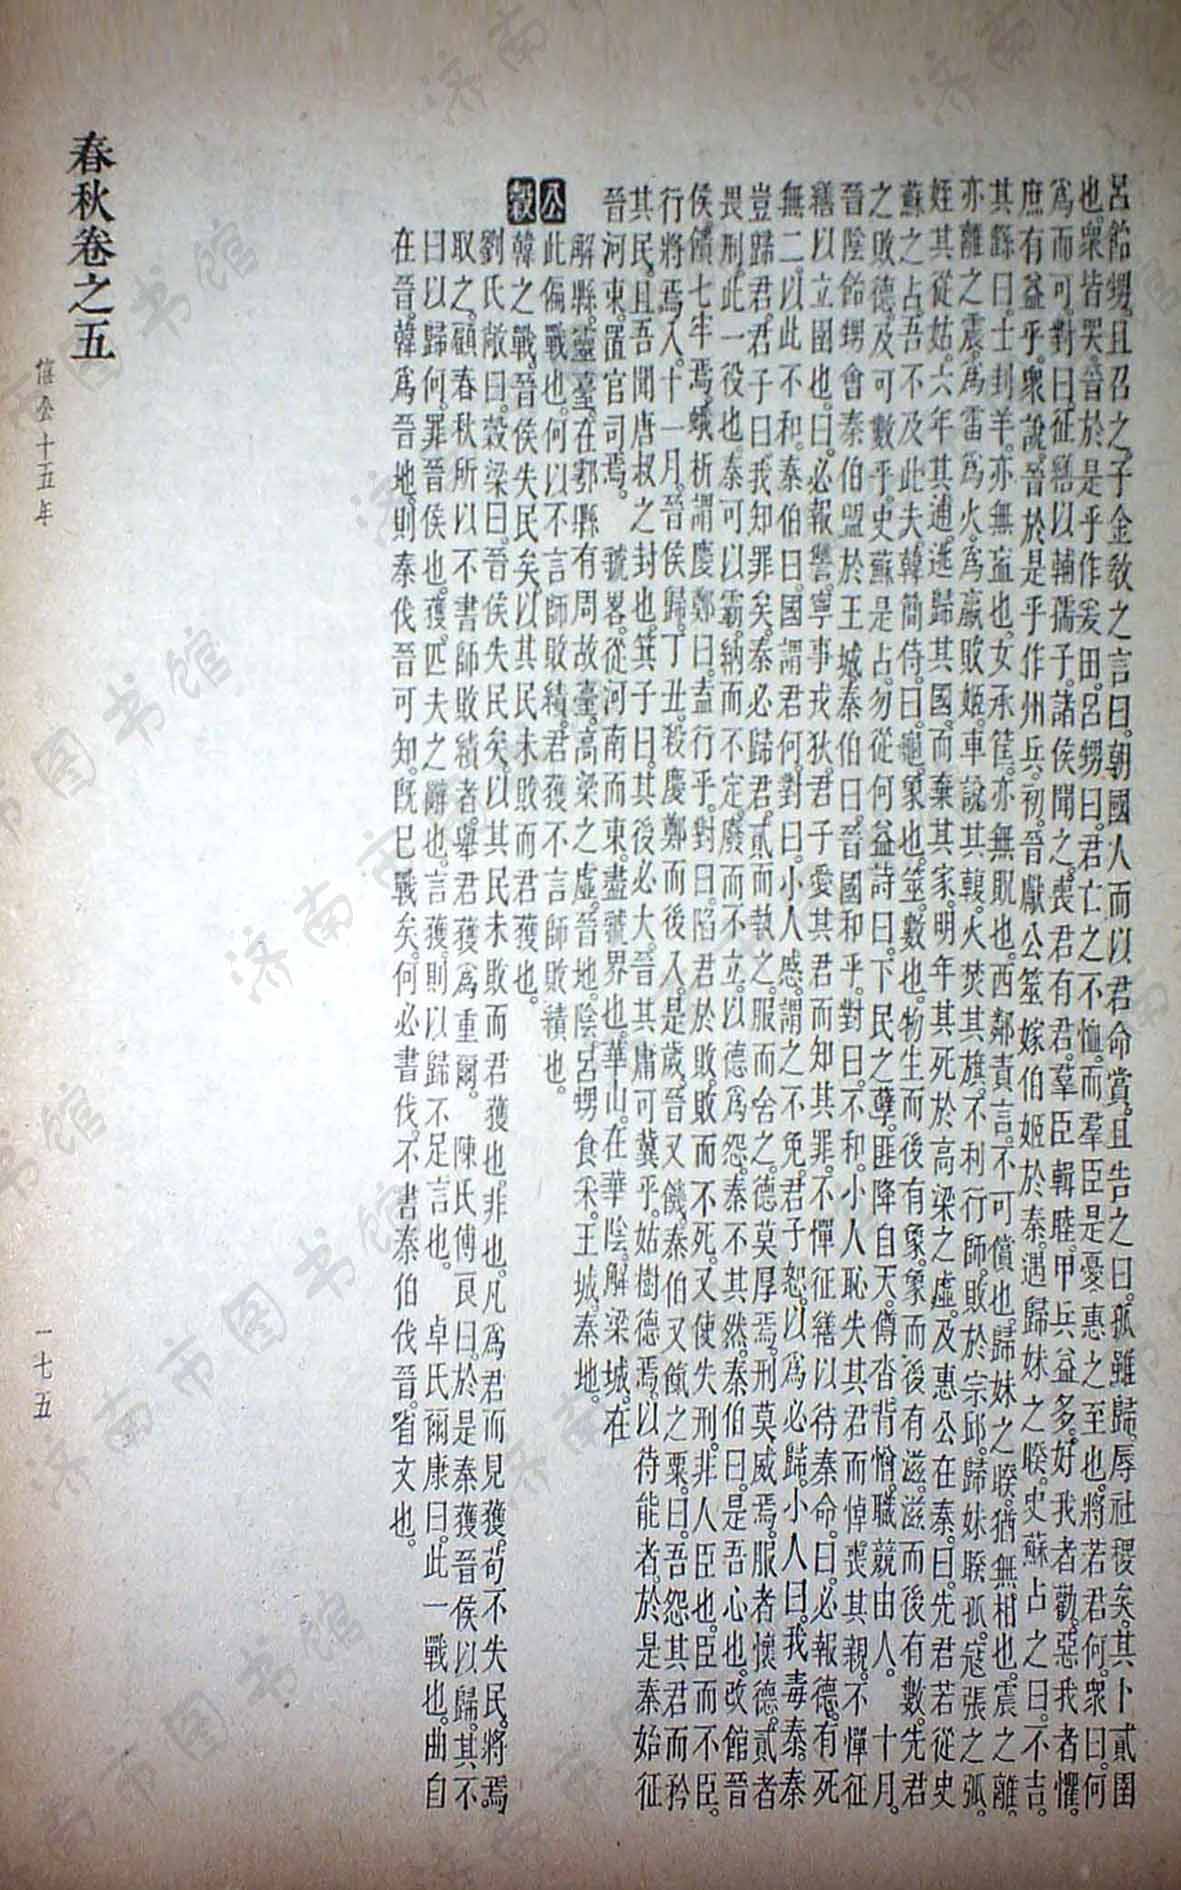 呂飴甥。且召之。子金敎之言曰。朝國人而以君命賞。且告之曰。孤雖歸。辱社稷矣。其卜貳圉
也。衆皆哭。晉於是乎作爰田。呂甥曰。君亡之不恤。而羣臣是憂。惠之至也。將若君何。衆曰。何
爲而可。對曰。征繕以輔孺子。諸侯聞之。喪君有君。羣臣輯睦。甲兵益多。好我者勸。惡我者懼。
庶有益乎。衆說。晉於是乎作州兵。初。晉獻公筮嫁伯姬於秦。遇歸妹之睽。史蘇占之曰。不吉。
其繇曰。士刲羊。亦無衁也。女承筐。亦無貺也。西鄰責言。不可償也。歸妹之睽。猶無相也。震之離。
亦離之震。爲雷爲火。爲嬴敗姬。車說其輹。火焚其旗。不利行師。敗於宗邱。歸妹睽孤。寇張之弧。
姪其從姑。六年其逋。逃歸其國。而棄其家。明年其死於高梁之虛。及惠公在秦。曰。先君若從史
蘇之占。吾不及此夫。韓簡侍。曰。龜。象也。筮。數也。物生而後有象。象而後有滋。滋而後有數。先君
之敗德。及可數乎。史蘇是占。勿從何益。詩曰。下民之孽。匪降自天。僔沓背憎。職競由人。 十月。
晉陰飴甥會秦伯盟於王城。秦伯曰。晉國和乎。對曰。不和。小人恥失其君而悼喪其親。不憚征
繕以立圉也。曰。必報讐。寧事戎狄。君子愛其君而知其罪。不憚征繕以待秦命。曰。必報德。有死
無二。以此不和。秦伯曰。國謂君何。對曰。小人慼。謂之不免。君子恕。以爲必歸。小人曰。我毒秦。秦
豈歸君。君子曰。我知罪矣。秦必歸君。貳而執之。服而舍之。德莫厚焉。刑莫威焉。服者懷德。貳者
畏刑。此一役也。秦可以霸。納而不定。廢而不立。以德爲怨。秦不其然。秦伯曰。是吾心也。改館晉
侯。饋七牢焉。蛾析謂慶鄭曰。盍行乎。對曰。陷君於敗。敗而不死。又使失刑。非人臣也。臣而不臣。
行將焉入。十一月。晉侯歸。丁丑。殺慶鄭而後入。是歲。晉又饑。秦伯又餼之粟。曰。吾怨其君而矜
其民。且吾聞唐叔之封也。箕子曰。其後必大。晉其庸可冀乎。姑樹德焉。以待能者。於是秦始征
晉河東。置官司焉。 虢畧。從河南而東。盡虢界也。華山。在華陰。解梁城。在
解縣。靈臺。在鄠縣。有周故臺。高梁之虛。晉地。陰。呂甥食采。王城。秦地。
公 此偏戰也。何以不言師敗績。君獲不言師敗績也。
穀 韓之戰。晉侯失民矣。以其民未敗而君獲也。
劉氏敞曰。穀梁曰。晉侯失民矣。以其民未敗而君獲也。非也。凡爲君而見獲。苟不失民。將焉
取之。顧春秋所以不書師敗績者。舉君獲爲重爾。 陳氏傅良曰。於是秦獲晉侯以歸。其不
曰以歸何。罪晉侯也。獲。匹夫之辭也。言獲。則以歸不足言也。 卓氏爾康曰。此一戰也。曲自
在晉。韓爲晉地。則秦伐晉可知。旣已戰矣。何必書伐。不書秦伯伐晉。省文也。
春秋卷之五 僖公十五年 一七五
济南市图书馆